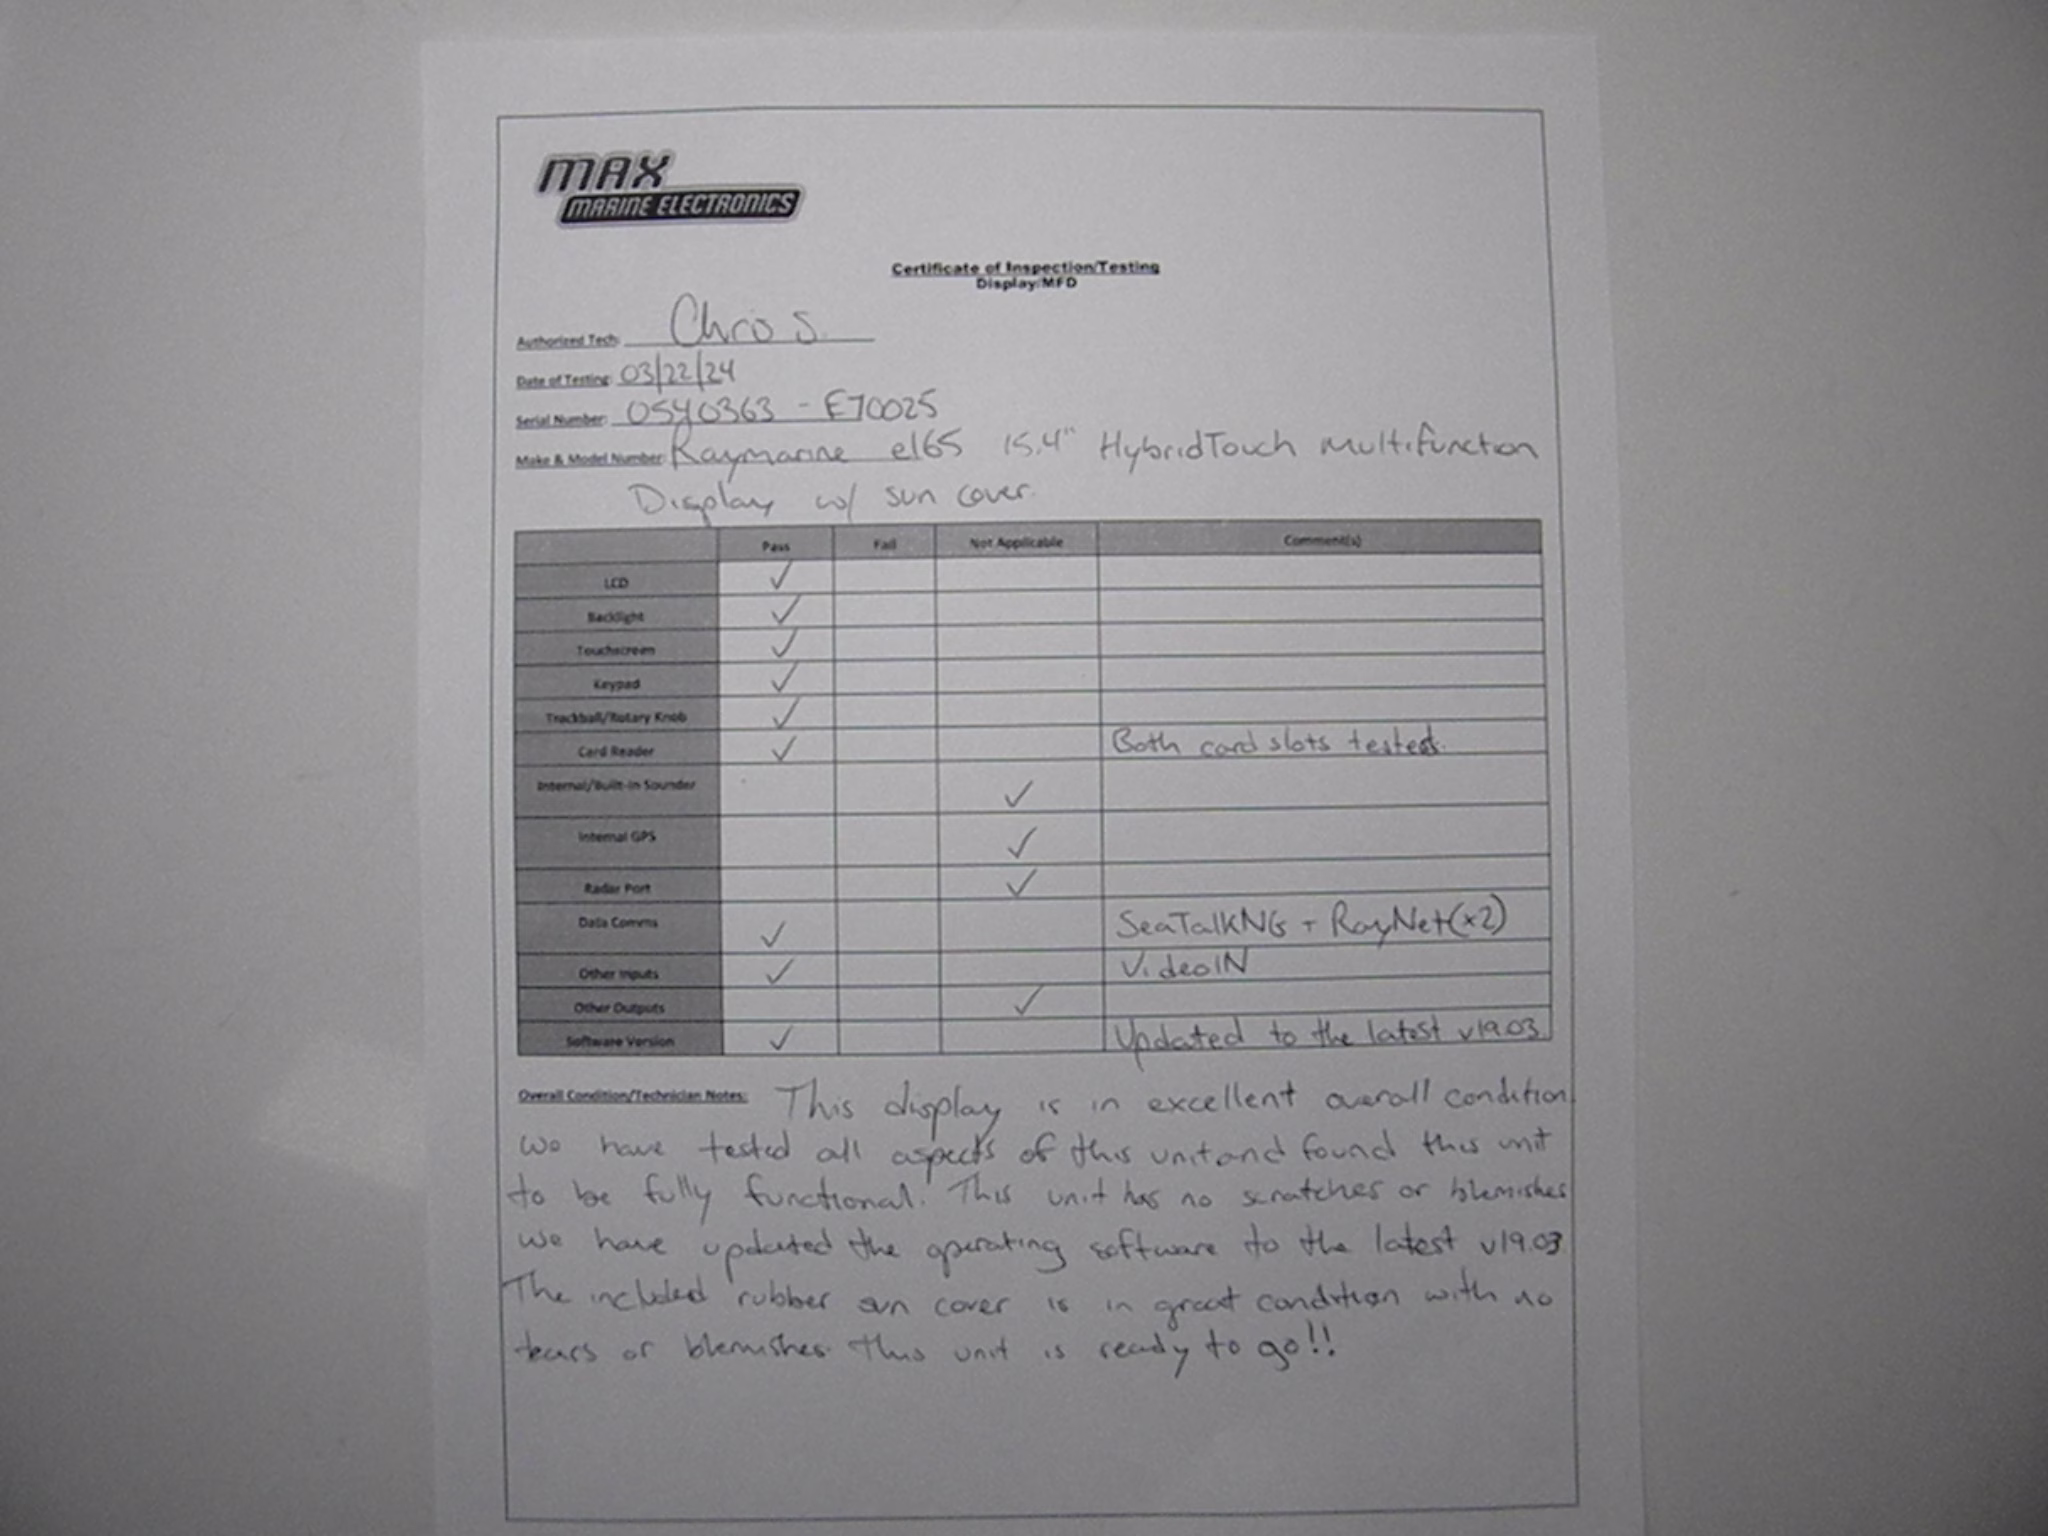 MAX
MARINE ELECTRONICS
Certificate of Inspection/Testing
Display/MFD
Authorized Tech: Chris S.
Date of Testing: 03/22/24
Serial Number: 0540363 - E70025
Make & Model Number: Raymarine e165 15.4" HybridTouch Multifunction
Display w/ sun cover.
Pass Fail Not Applicable Comment(s)
LCD ✓
Backlight ✓
Touchscreen ✓
Keypad ✓
Trackball/Rotary Knob ✓
Card Reader ✓ Both card slots tested.
Internal/Built-in Sounder ✓
Internal GPS ✓
Radar Port ✓
Data Comms ✓ SeaTalkNG + RayNet(x2)
Other Inputs ✓ VideoIN
Other Outputs ✓
Software Version ✓ Updated to the latest v19.03
Overall Condition/Technician Notes: This display is in excellent overall condition
we have tested all aspects of this unit and found this unit
to be fully functional. This unit has no scratches or blemishes
we have updated the operating software to the latest v19.03
The included rubber sun cover is in great condition with no
tears or blemishes. This unit is ready to go!!